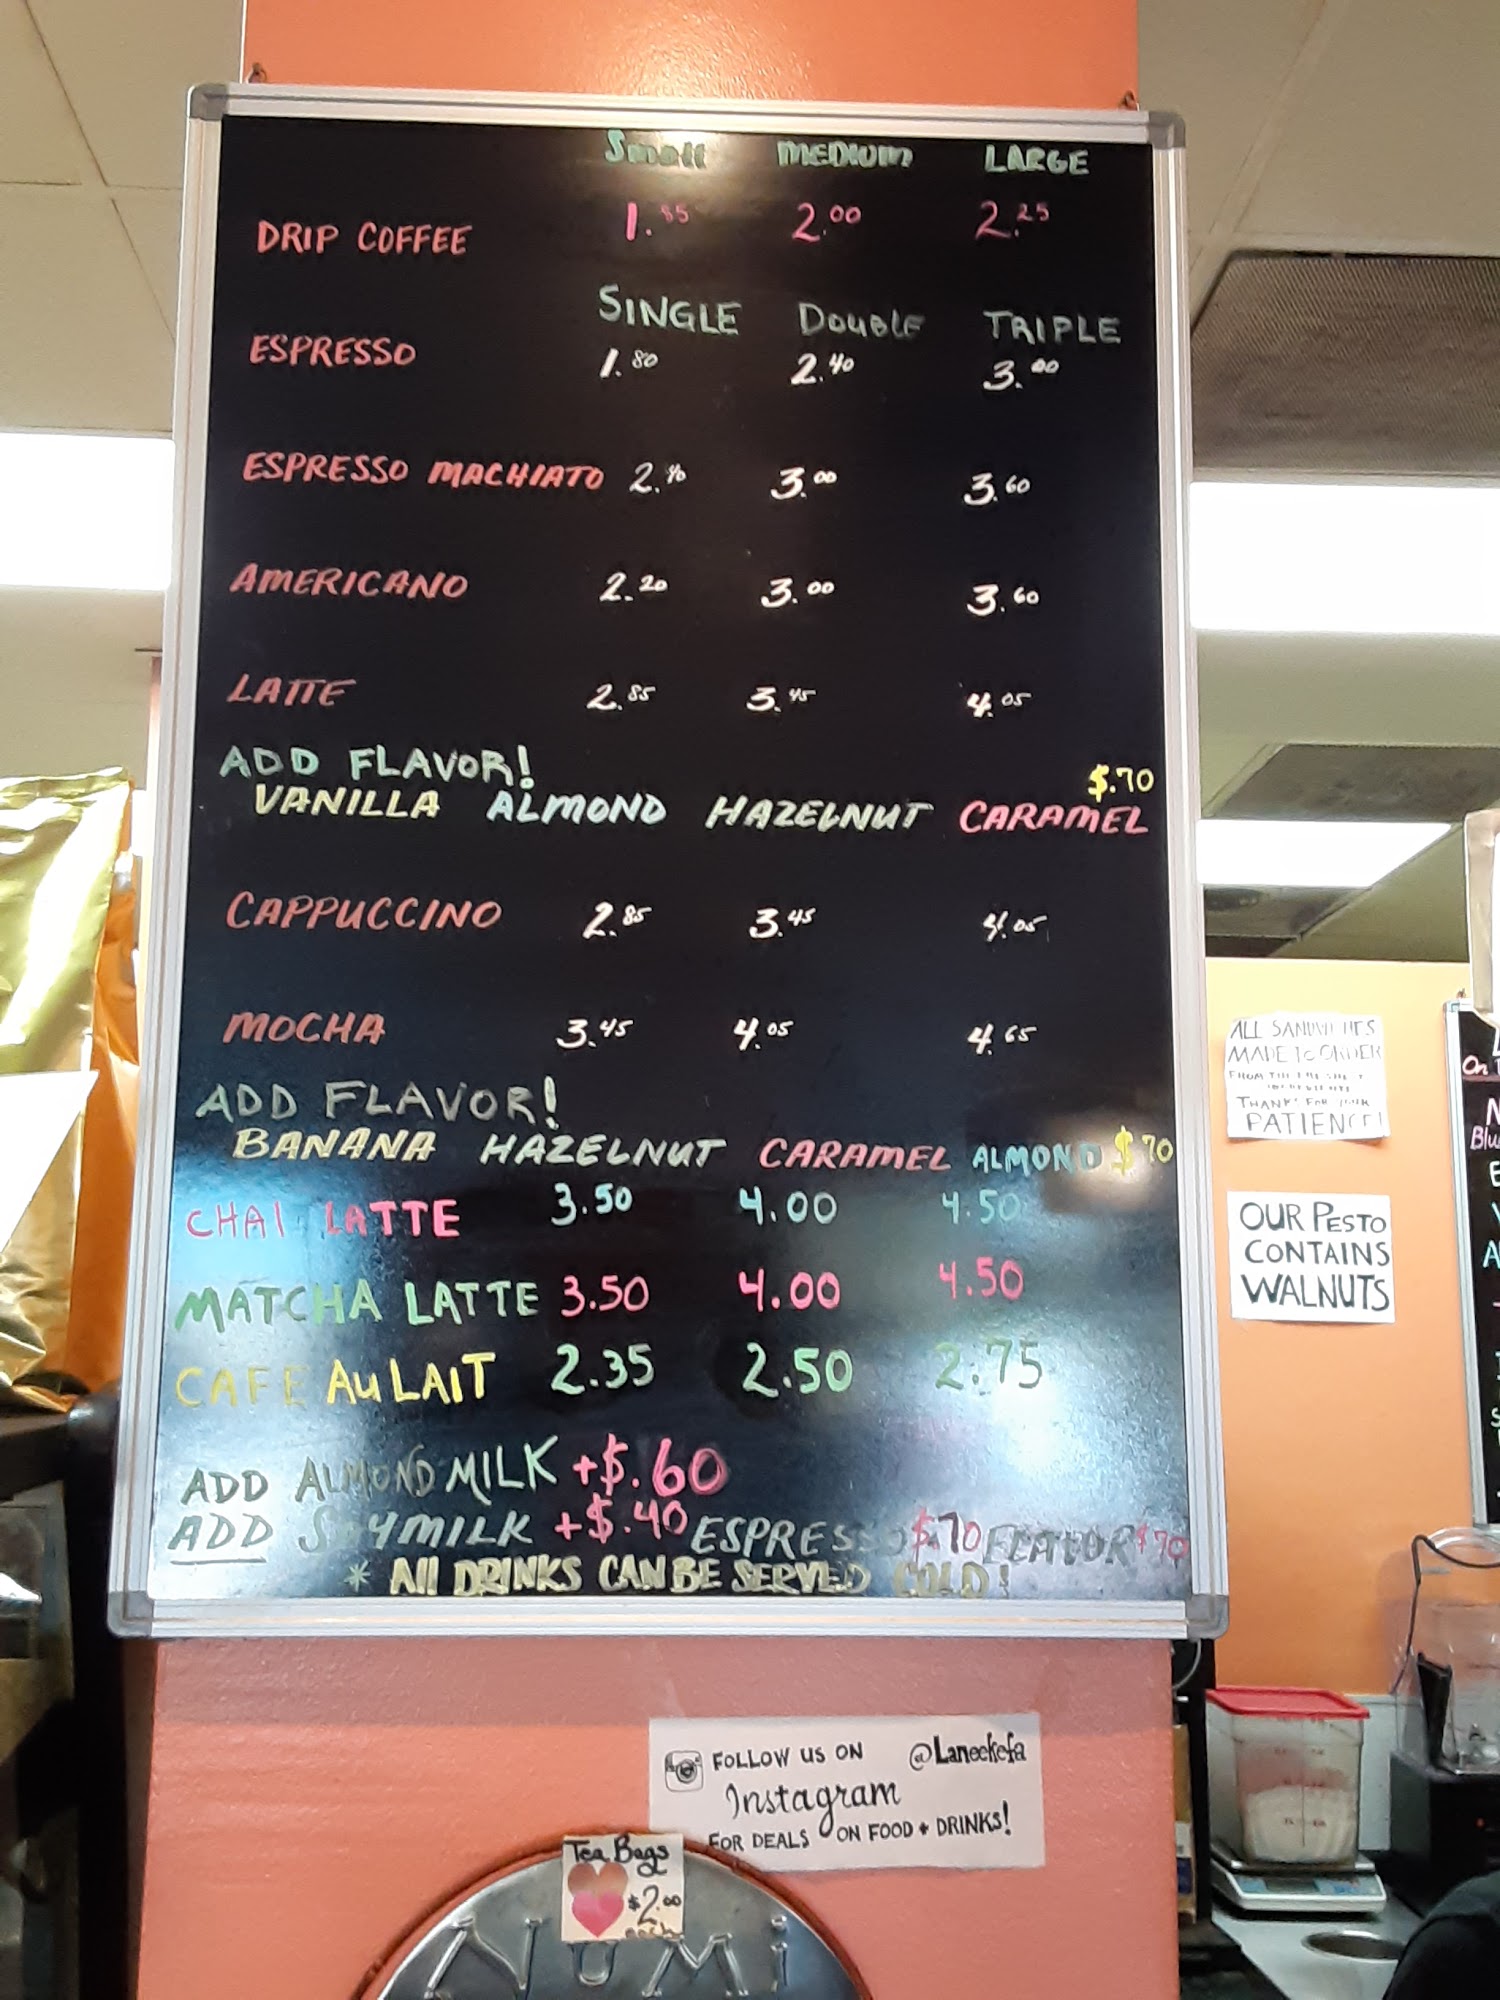 Small MEDIUM LARGE
DRIP COFFEE 1.85 2.00 2.25
SINGLE DOUBLE TRIPLE
ESPRESSO 1.80 2.40 3.00
ESPRESSO MACHIATO 2.40 3.00 3.60
AMERICANO 2.20 3.00 3.60
LATTE 2.85 3.45 4.05
ADD FLAVOR! $.70
VANILLA ALMOND HAZELNUT CARAMEL
CAPPUCCINO 2.85 3.45 4.05
MOCHA 3.45 4.05 4.65
ADD FLAVOR!
BANANA HAZELNUT CARAMEL ALMOND $70
CHAI LATTE 3.50 4.00 4.50
MATCHA LATTE 3.50 4.00 4.50
CAFE AU LAIT 2.35 2.50 2.75
ADD ALMOND MILK +$.60
ADD SOYMILK +$.40 ESPRESSO $.70 FLAVOR $70
* All DRINKS CAN BE SERVED COLD!
ALL SANDWICHES
MADE to ORDER
FROM THE FRESHEST
INGREDIENTS
THANKS FOR YOUR
PATIENCE!
OUR PESTO
CONTAINS
WALNUTS
On
Blu
FOLLOW US ON @Laneekefa
Instagram
FOR DEALS ON FOOD + DRINKS!
Tea Bags
$2.00
each
NUMi